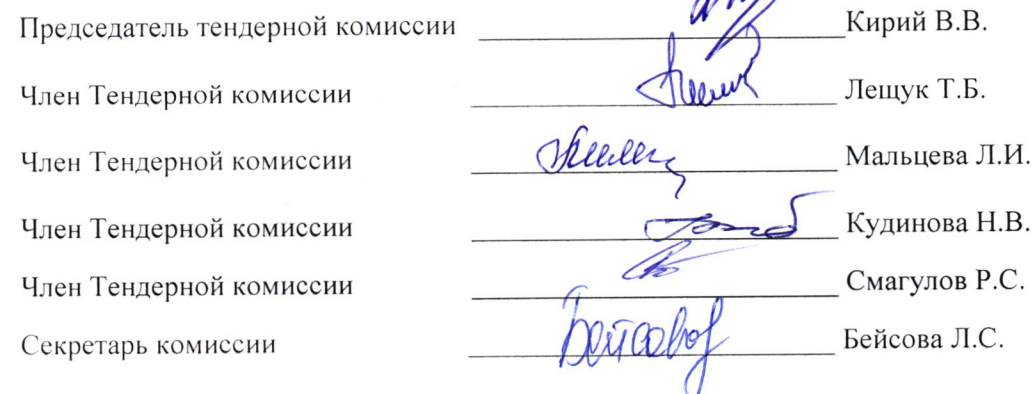 Председатель тендерной комиссии Кирий В.В.
Член Тендерной комиссии Лещук Т.Б.
Член Тендерной комиссии Мальцева Л.И.
Член Тендерной комиссии Кудинова Н.В.
Член Тендерной комиссии Смагулов Р.С.
Секретарь комиссии Бейсова Л.С.